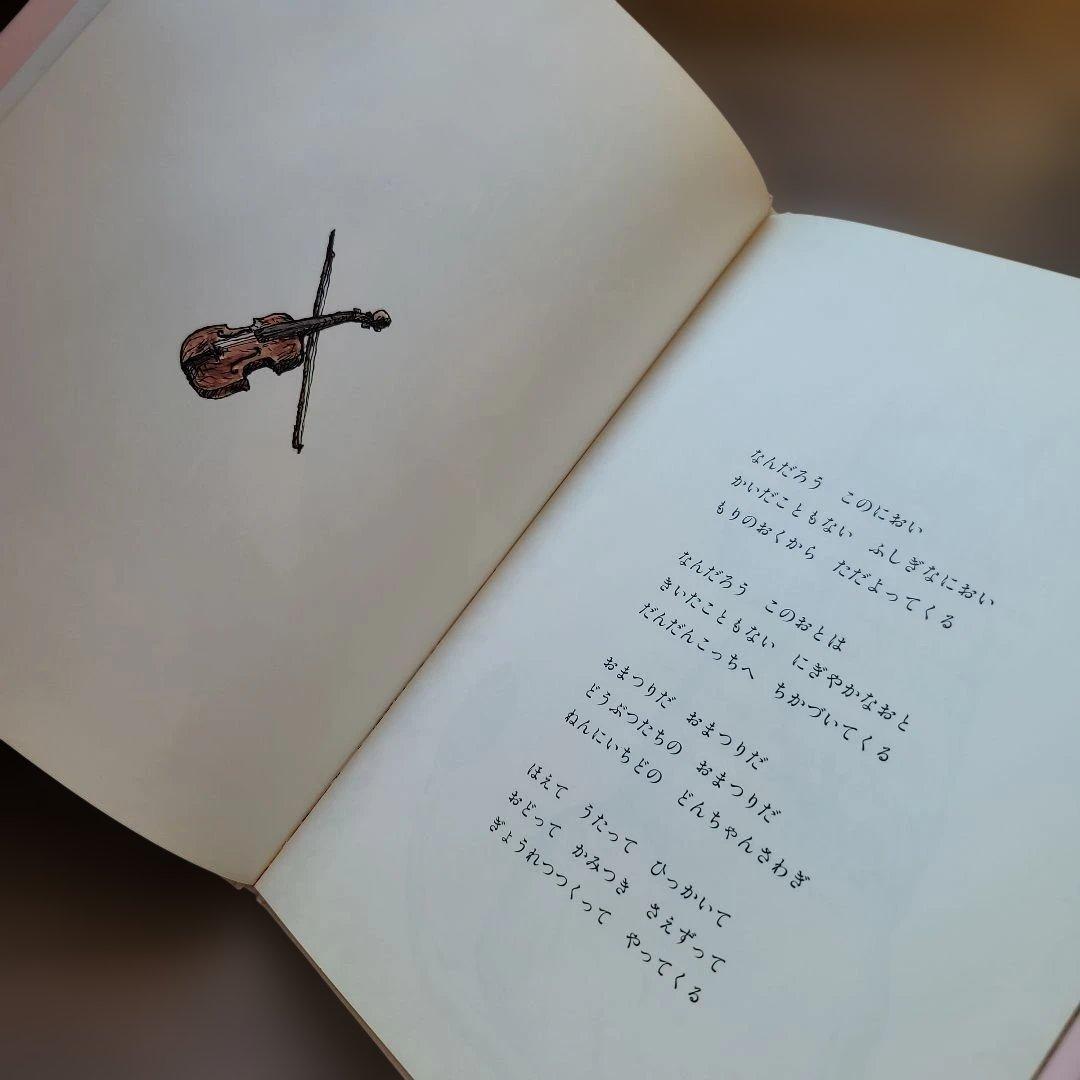 なんだろう　このにおい
かいだこともない　ふしぎなにおい
もりのおくから　ただよってくる
なんだろう　このおとは
きいたこともない　にぎやかなおと
だんだんこっちへ　ちかづいてくる
おまつりだ　おまつりだ
どうぶつたちの　おまつりだ
ねんにいちどの　どんちゃんさわぎ
ほえて　うたって　ひっかいて
おどって　かみつき　さえずって
ぎょうれつつくって　やってくる